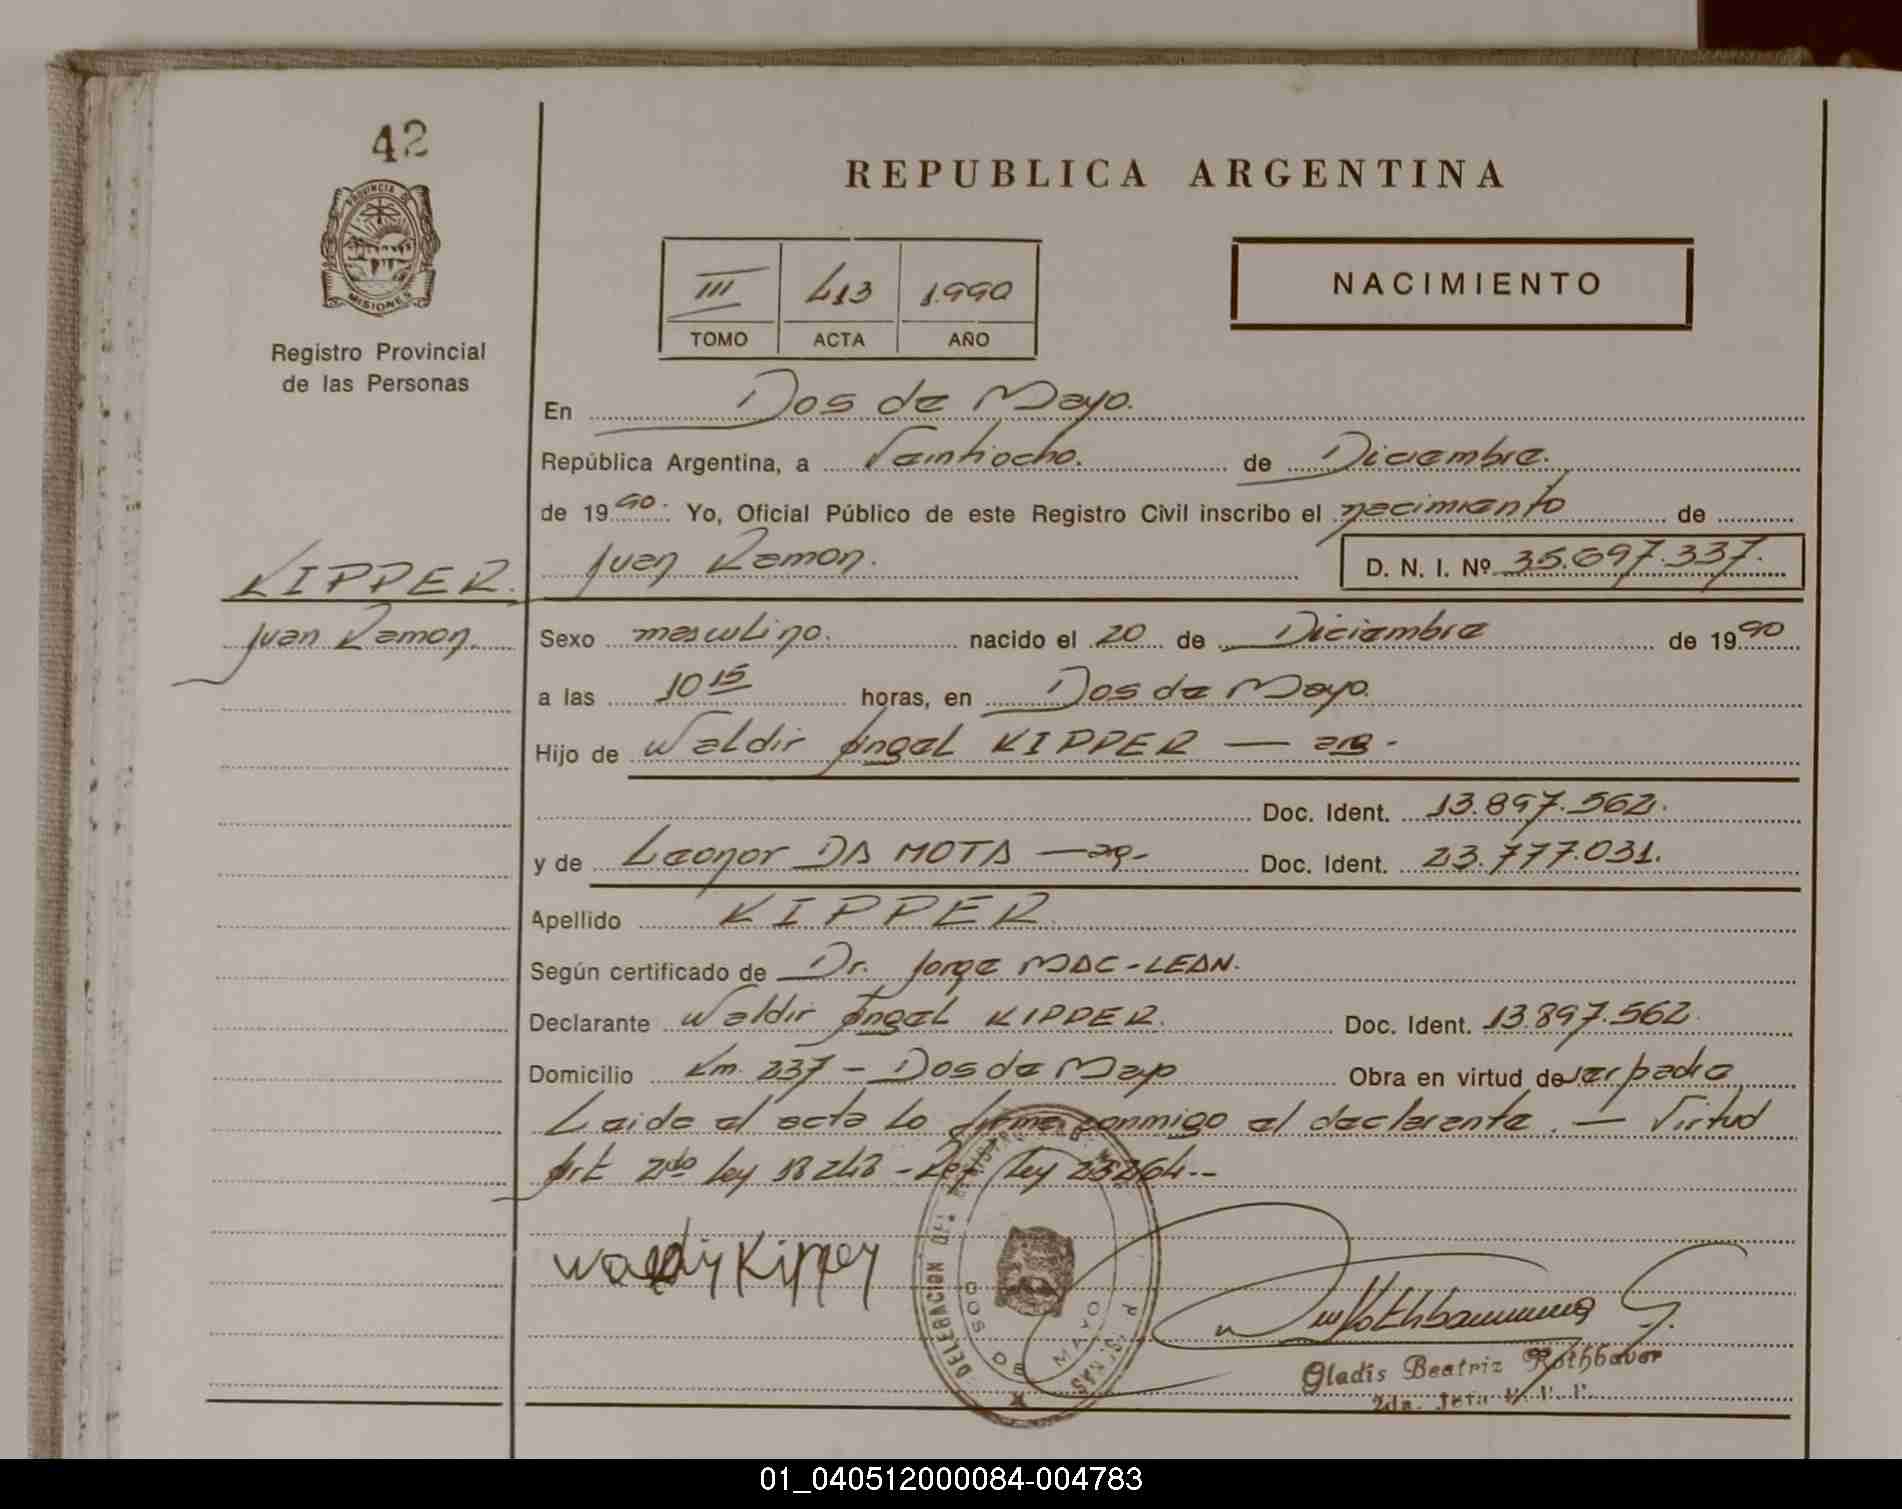 42
PROVINCIA DE
MISIONES
Registro Provincial
de las Personas
REPUBLICA ARGENTINA
III 413 1.990
TOMO ACTA AÑO
NACIMIENTO
En Dos de Mayo.
República Argentina, a Veintiocho. de Diciembre.
de 1990. Yo, Oficial Público de este Registro Civil inscribo el nacimiento de
KIPPER. Juan Ramon. D. N. I. Nº 35.697.337.
Juan Ramon. Sexo masculino. nacido el 20 de Diciembre de 1990
a las 10 15 horas, en Dos de Mayo.
Hijo de Waldir Angel KIPPER — arg.-
Doc. Ident. 13.897.562.
y de Leonor DA MOTA — arg.- Doc. Ident. 23.777.031.
Apellido KIPPER.
Según certificado de Dr. Jorge MAC-LEAN.
Declarante Waldir Angel KIPPER. Doc. Ident. 13.897.562.
Domicilio Km. 237 - Dos de Mayo Obra en virtud de ser padre
Leida el acta la firma conmigo el declarante. — Virtud
Art 2do ley 18248 - Ley 23264.-
Waldir Kipper
DELEGACION DEL REGISTRO
DOS DE MAYO
Rothbauer G.
Gladis Beatriz Rothbauer
2da. Jefa
01_040512000084-004783